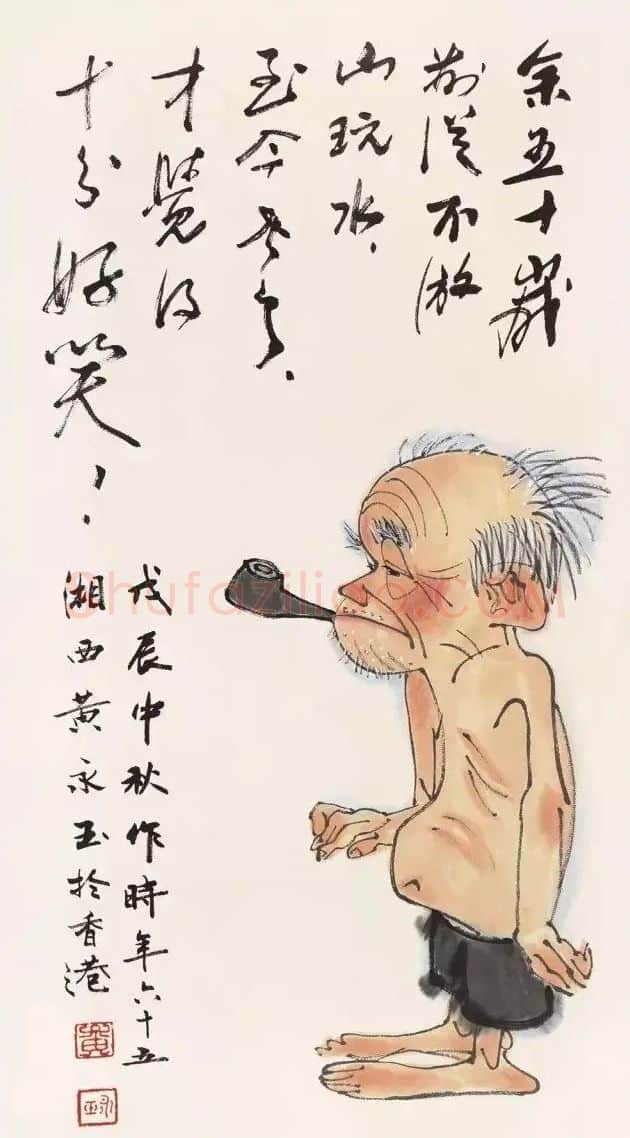 余五十歲
前從不游
山玩水、
至今老了、
才覺得
十分好笑！
戊辰中秋作時年六十五
湘西黄永玉於香港
黃
永玉
Shufaziliao.COM